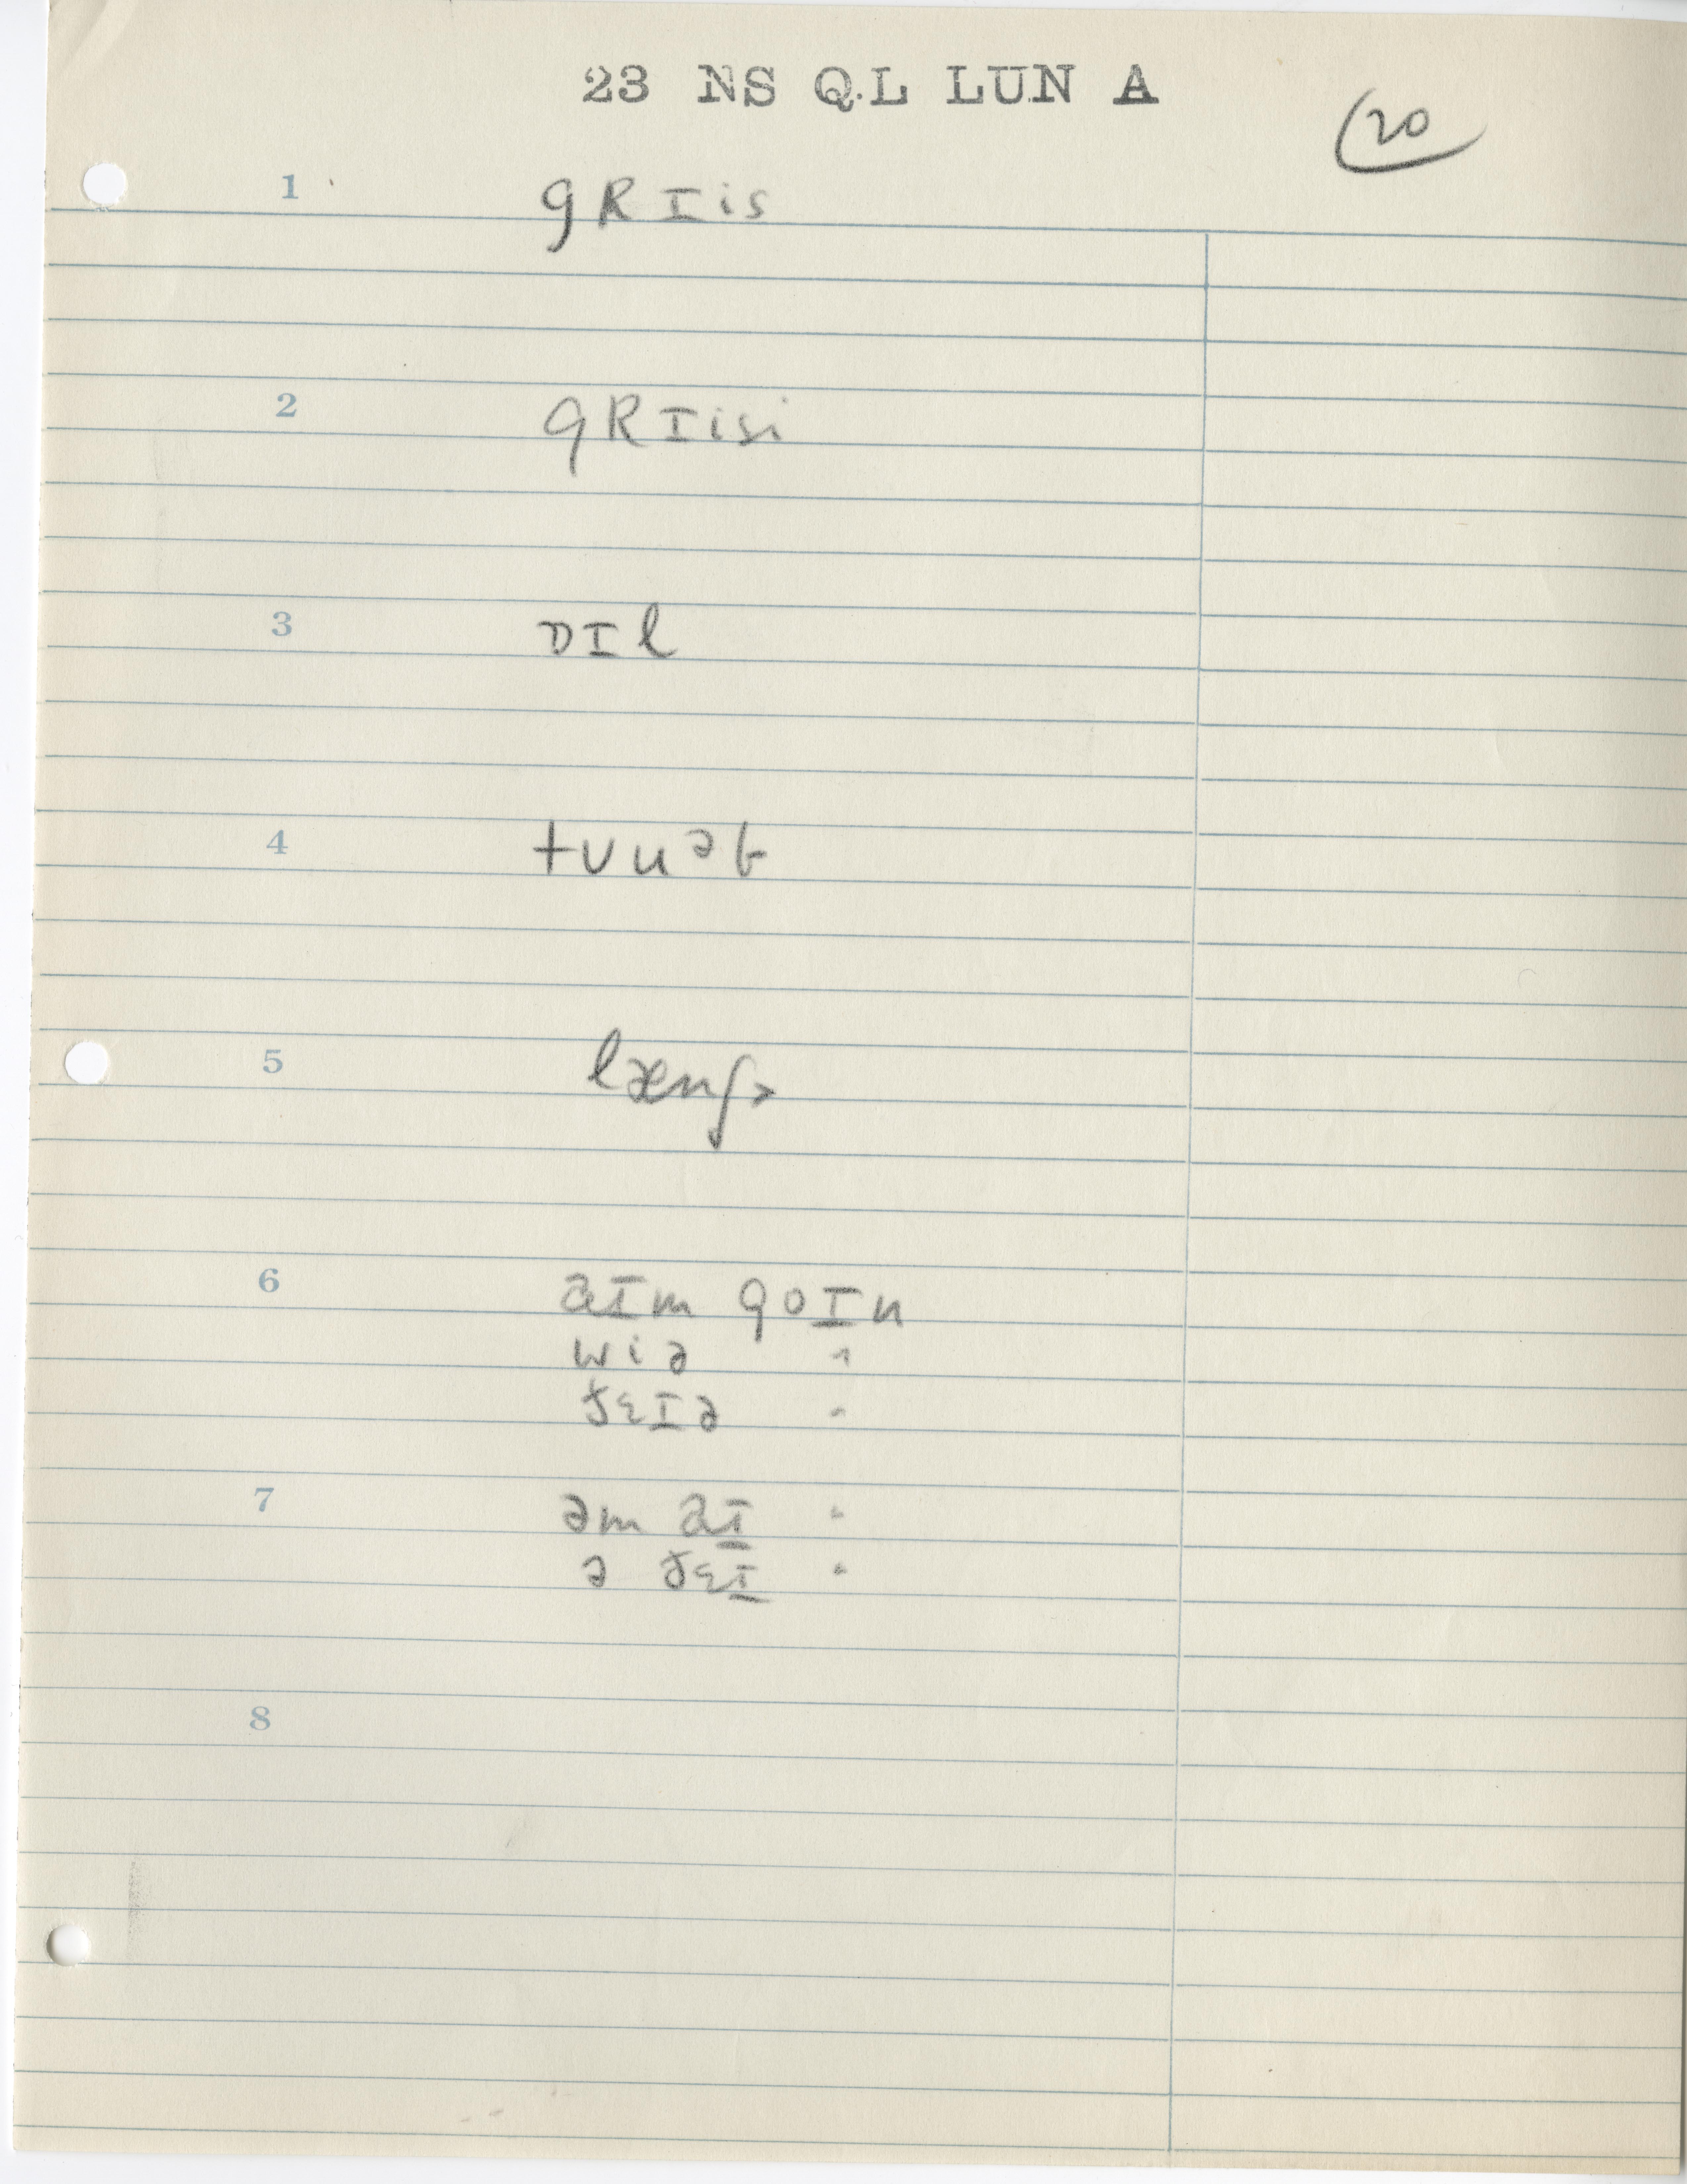 23 NS QL LUN A
20
1 gRIis
2 gRIisi
3 DIl
4 tʊuəb
5 lænʃə
6 aIm goIn
wiə "
ðɛIə "
7 əm aI "
ə ðɛI "
8